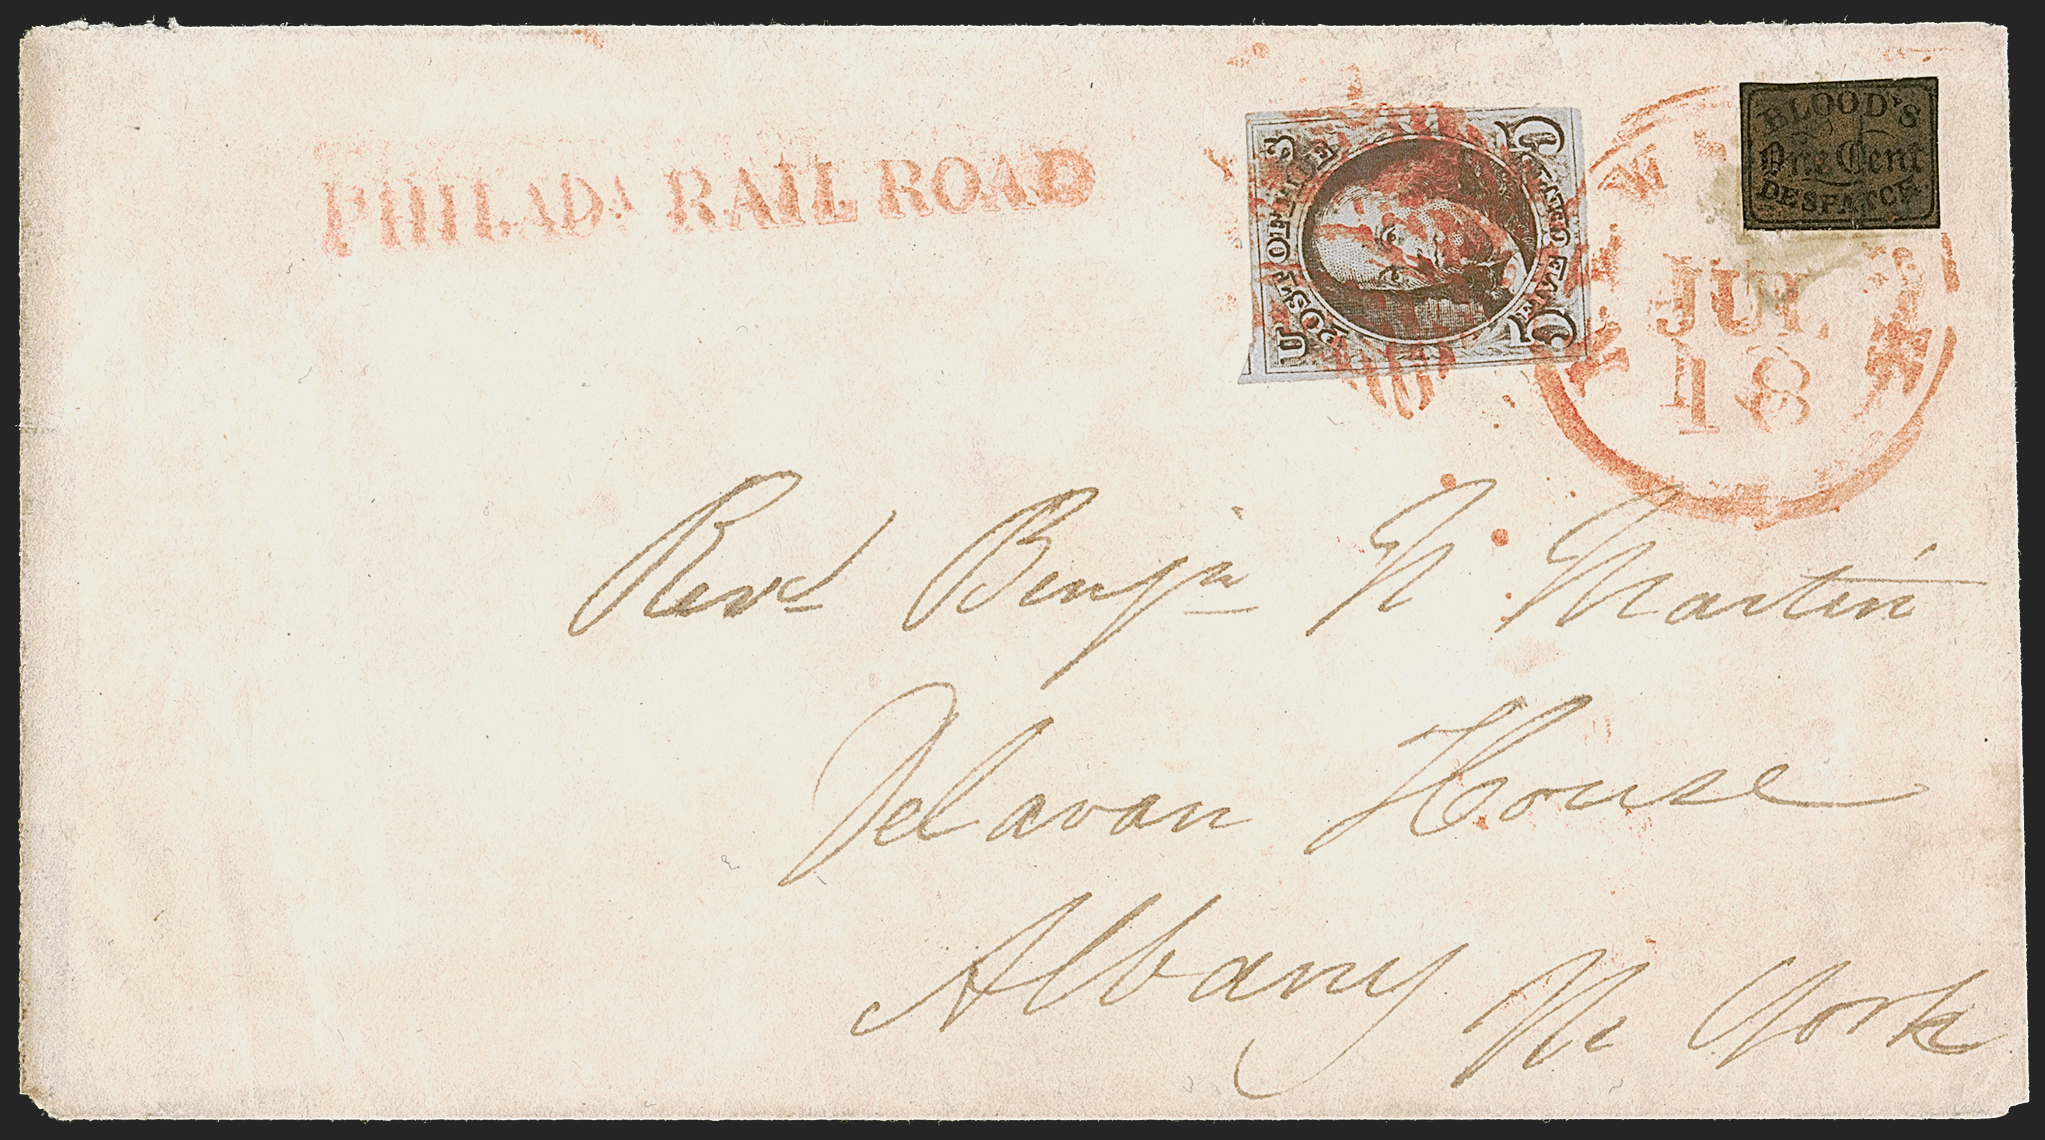 PHILADA RAIL ROAD
U S
POST OFFICE
UNITED STATES
5 5
BLOOD'S
One Cent
DESPATCH
JUL
18
Revd Benjn N Martin
Delavan House
Albany N. York